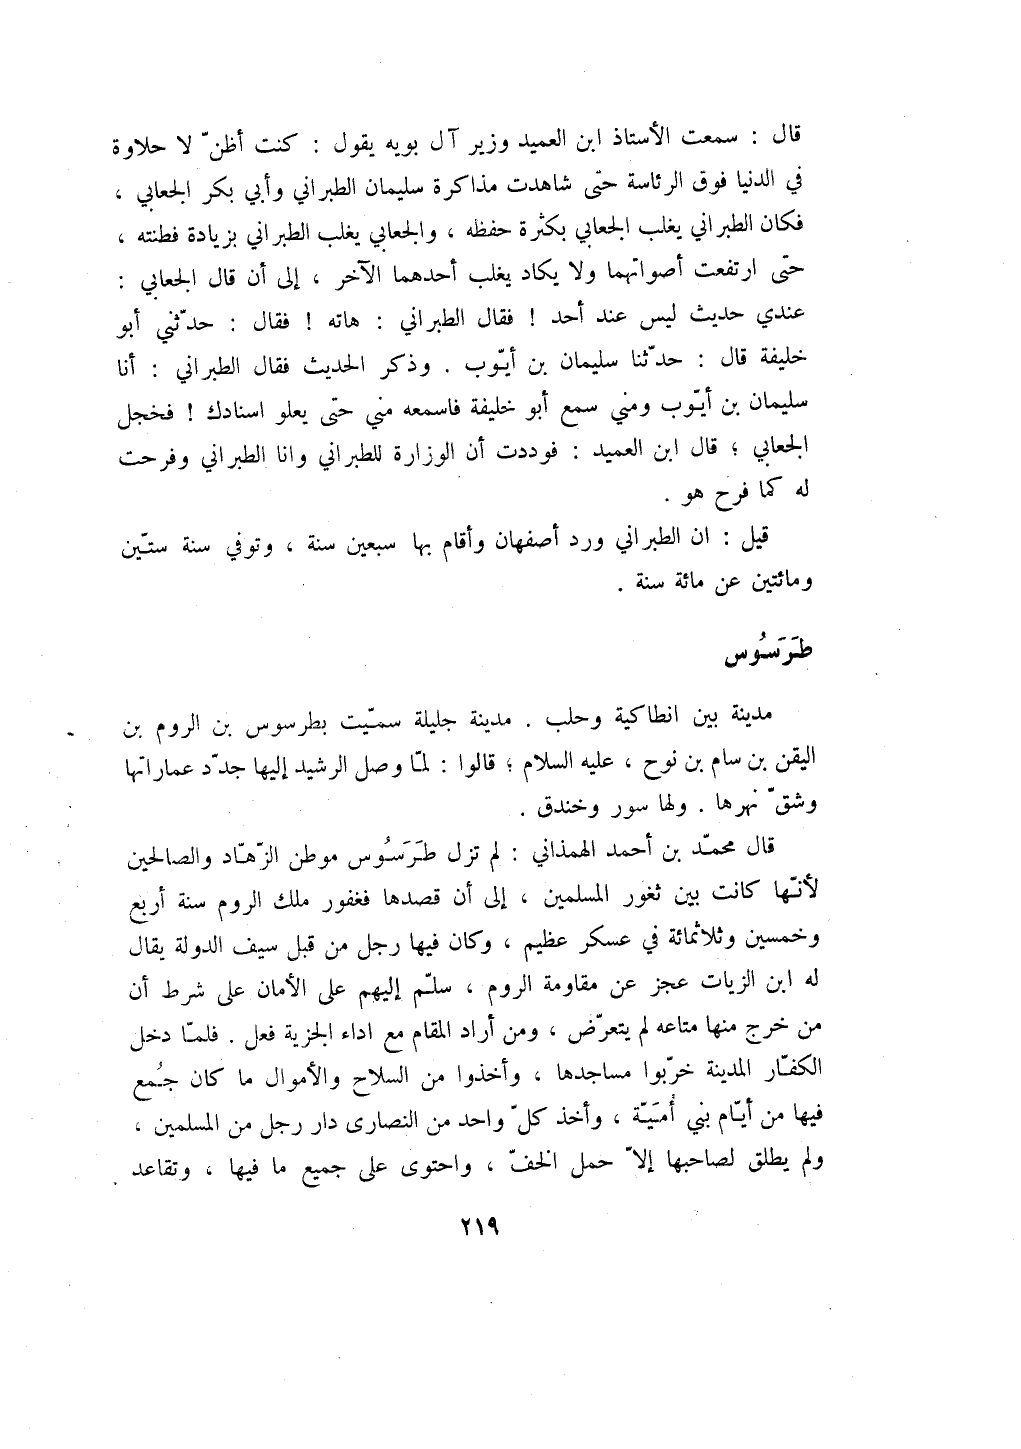 قال : سمعت الأستاذ ابن العميد وزير آل بويه يقول : كنت أظنّ لا حلاوة
في الدنيا فوق الرئاسة حتّى شاهدت مذاكرة سليمان الطبراني وأبي بكر الجعابي ،
فكان الطبراني يغلب الجعابي بكثرة حفظه ، والجعابي يغلب الطبراني بزيادة فطنته ،
حتّى ارتفعت أصواتهما ولا يكاد يغلب أحدهما الآخر ، إلى أن قال الجعابي :
عندي حديث ليس عند أحد ! فقال الطبراني : هاته ! فقال : حدّثني أبو
خليفة قال : حدّثنا سليمان بن أيّوب . وذكر الحديث فقال الطبراني : أنا
سليمان بن أيّوب ومني سمع أبو خليفة فاسمعه مني حتى يعلو اسنادك ! فخجل
الجعابي ؛ قال ابن العميد : فوددت أن الوزارة للطبراني وانا الطبراني وفرحت
له كما فرح هو .
قيل : ان الطبراني ورد أصفهان وأقام بها سبعين سنة ، وتوفي سنة ستّين
ومائتين عن مائة سنة .
طَرَسُوس
مدينة بين انطاكية وحلب . مدينة جليلة سمّيت بطرسوس بن الروم بن
اليقن بن سام بن نوح ، عليه السلام ؛ قالوا : لمّا وصل الرشيد إليها جدّد عماراتها
وشقّ نهرها . ولها سور وخندق .
قال محمّد بن أحمد الهمذاني : لم تزل طَرَسُوس موطن الزّهّاد والصالحين
لأنّها كانت بين ثغور المسلمين ، إلى أن قصدها فغفور ملك الروم سنة أربع
وخمسين وثلاثمائة في عسكر عظيم ، وكان فيها رجل من قبل سيف الدولة يقال
له ابن الزيات عجز عن مقاومة الروم ، سلّم إليهم على الأمان على شرط أن
من خرج منها متاعه لم يتعرّض ، ومن أراد المقام مع اداء الجزية فعل . فلمّا دخل
الكفّار المدينة خرّبوا مساجدها ، وأخذوا من السلاح والأموال ما كان جُمع
فيها من أيّام بني أُميَّة ، وأخذ كلّ واحد من النصارى دار رجل من المسلمين ،
ولم يطلق لصاحبها إلاّ حمل الخفّ ، واحتوى على جميع ما فيها ، وتقاعد
٢١٩